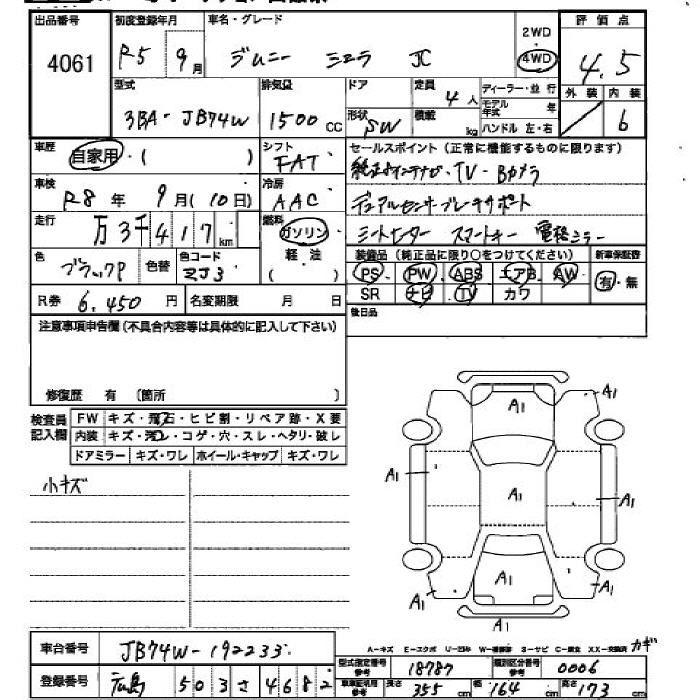 出品番号 初度登録年月 車名・グレード 2WD 評価点
4061 R5 9月 ジムニー シエラ JC 4WD 4.5
型式 排気量 ドア 定員 ディーラー・並行 外装 内装
3BA-JB74W 1500 CC 4人 モデル年式 年 6
形状 SW 積載 kg ハンドル 左・右
車歴 自家用・( ) シフト FAT セールスポイント(正常に機能するものに限ります)
TV・Bカメラ
車検 R8年 9月(10日) 冷房 AAC デュアルセンサーブレーキサポート
走行 万3千417km 燃料 ガソリン シートヒーター スマートキー 電格ミラー
軽油 ( ) 装備品(純正品に限り○をつけてください) 新車保証書
色 ブラックP 色替 色コード ZJ3 PS PW ABS エアB AW 有・無
R券 6,450円 名変期限 月 日 SR ナビ TV カワ
注意事項申告欄(不具合内容等は具体的に記入して下さい) 後日品
修復歴 有 〔箇所 〕
検査員記入欄 FW キズ・飛石・ヒビ割・リペア跡・X要
内装 キズ・汚レ・コゲ・穴・スレ・ヘタリ・破レ
ドアミラー キズ・ワレ ホイール・キャップ キズ・ワレ
小キズ
A1 A1
A1 A1 A1
A1 A1 A1
A1
A-キズ E-エクボ U-凹み W-補修跡 S-サビ C-腐食 XX-交換済 カギ
車台番号 JB74W-192233
型式指定番号参考 18787 類別区分番号参考 0006
登録番号 広島 503 さ 4682
車車証記載参考 長さ 355cm 幅 164cm 高さ 173cm